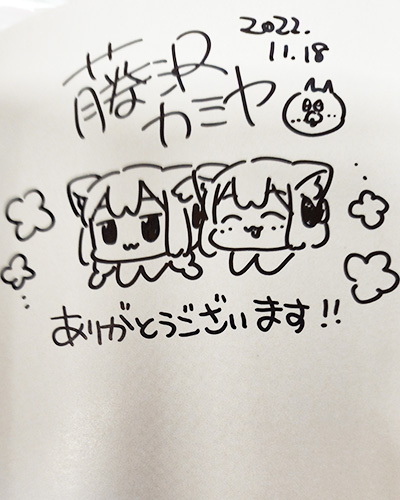 2022.
11.18
藤沢
カミヤ
ありがとうございます!!